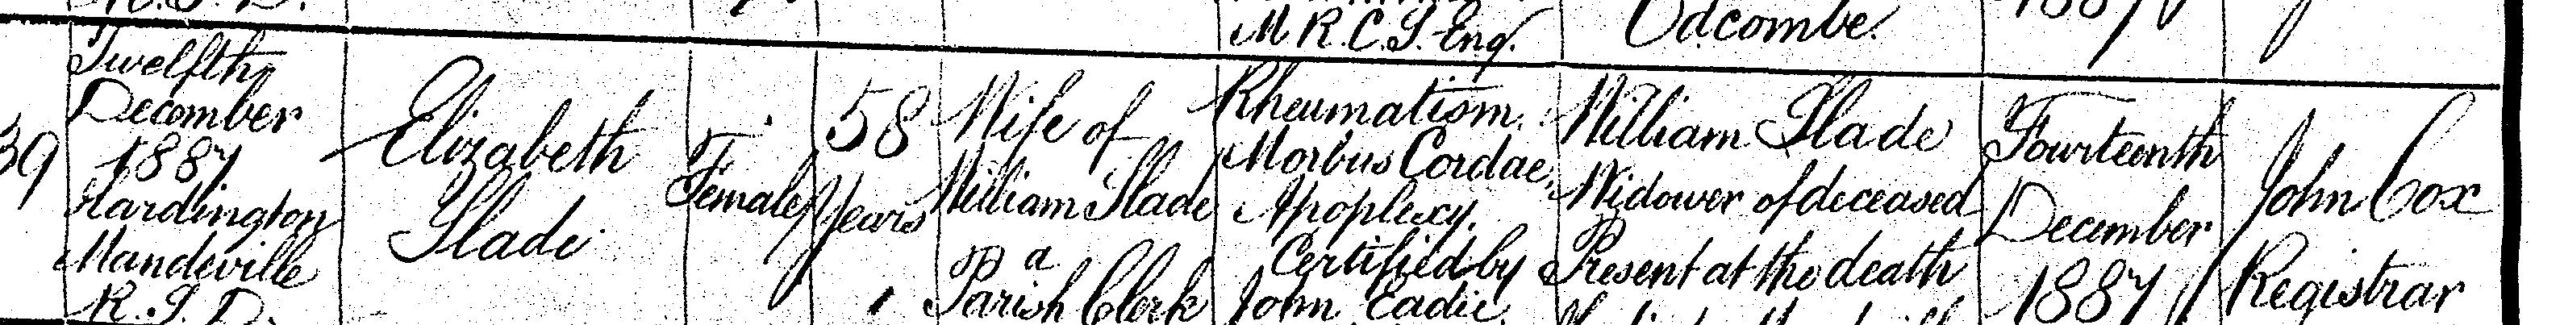 M.R.C.S. Eng.
Odcombe.
1887
39
Twelfth
December
1887
Hardington
Mandeville
R.S.D.
Elizabeth
Slade
Female
58
Years
Wife of
William Slade
a
Parish Clerk
Rheumatism.
Morbus Cordae,
Apoplexy.
Certified by
John Eadie
William Slade
Widower of deceased
Present at the death
Fourteenth
December
1887
John Cox
Registrar